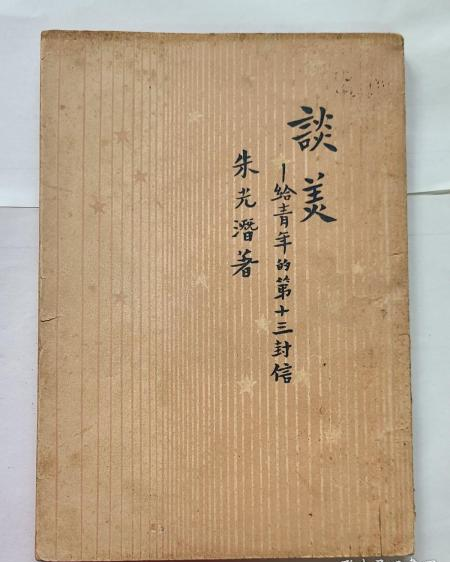 談美
—給青年的第十三封信
朱光潛著